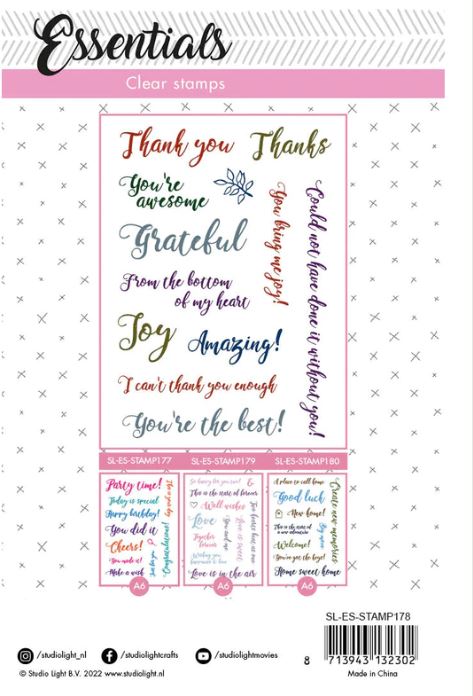 Essentials
Clear stamps
Thank you
Thanks
You're
awesome
Grateful
From the bottom
of my heart
You bring me joy!
Could not have done it without you!
Joy
Amazing!
I can't thank you enough
You're the best!
SL-ES-STAMP177
SL-ES-STAMP179
SL-ES-STAMP180
Party time!
Today is special
Happy birthday!
You did it
Cheers!
You made it!
Make a wish
Congratulations!
A6
So happy for you two!
&
This is the start of forever
Well wishes
Love
Together forever
Love is in the air
A6
A place to call home
Good luck
New home!
This is the start of a new adventure
Welcome!
Create new memories
Home sweet home
A6
SL-ES-STAMP178
8 713943 132302
/studiolight_nl
/studiolightcrafts
/studiolightmovies
© Studio Light B.V. 2022 www.studiolight.nl
Made in China